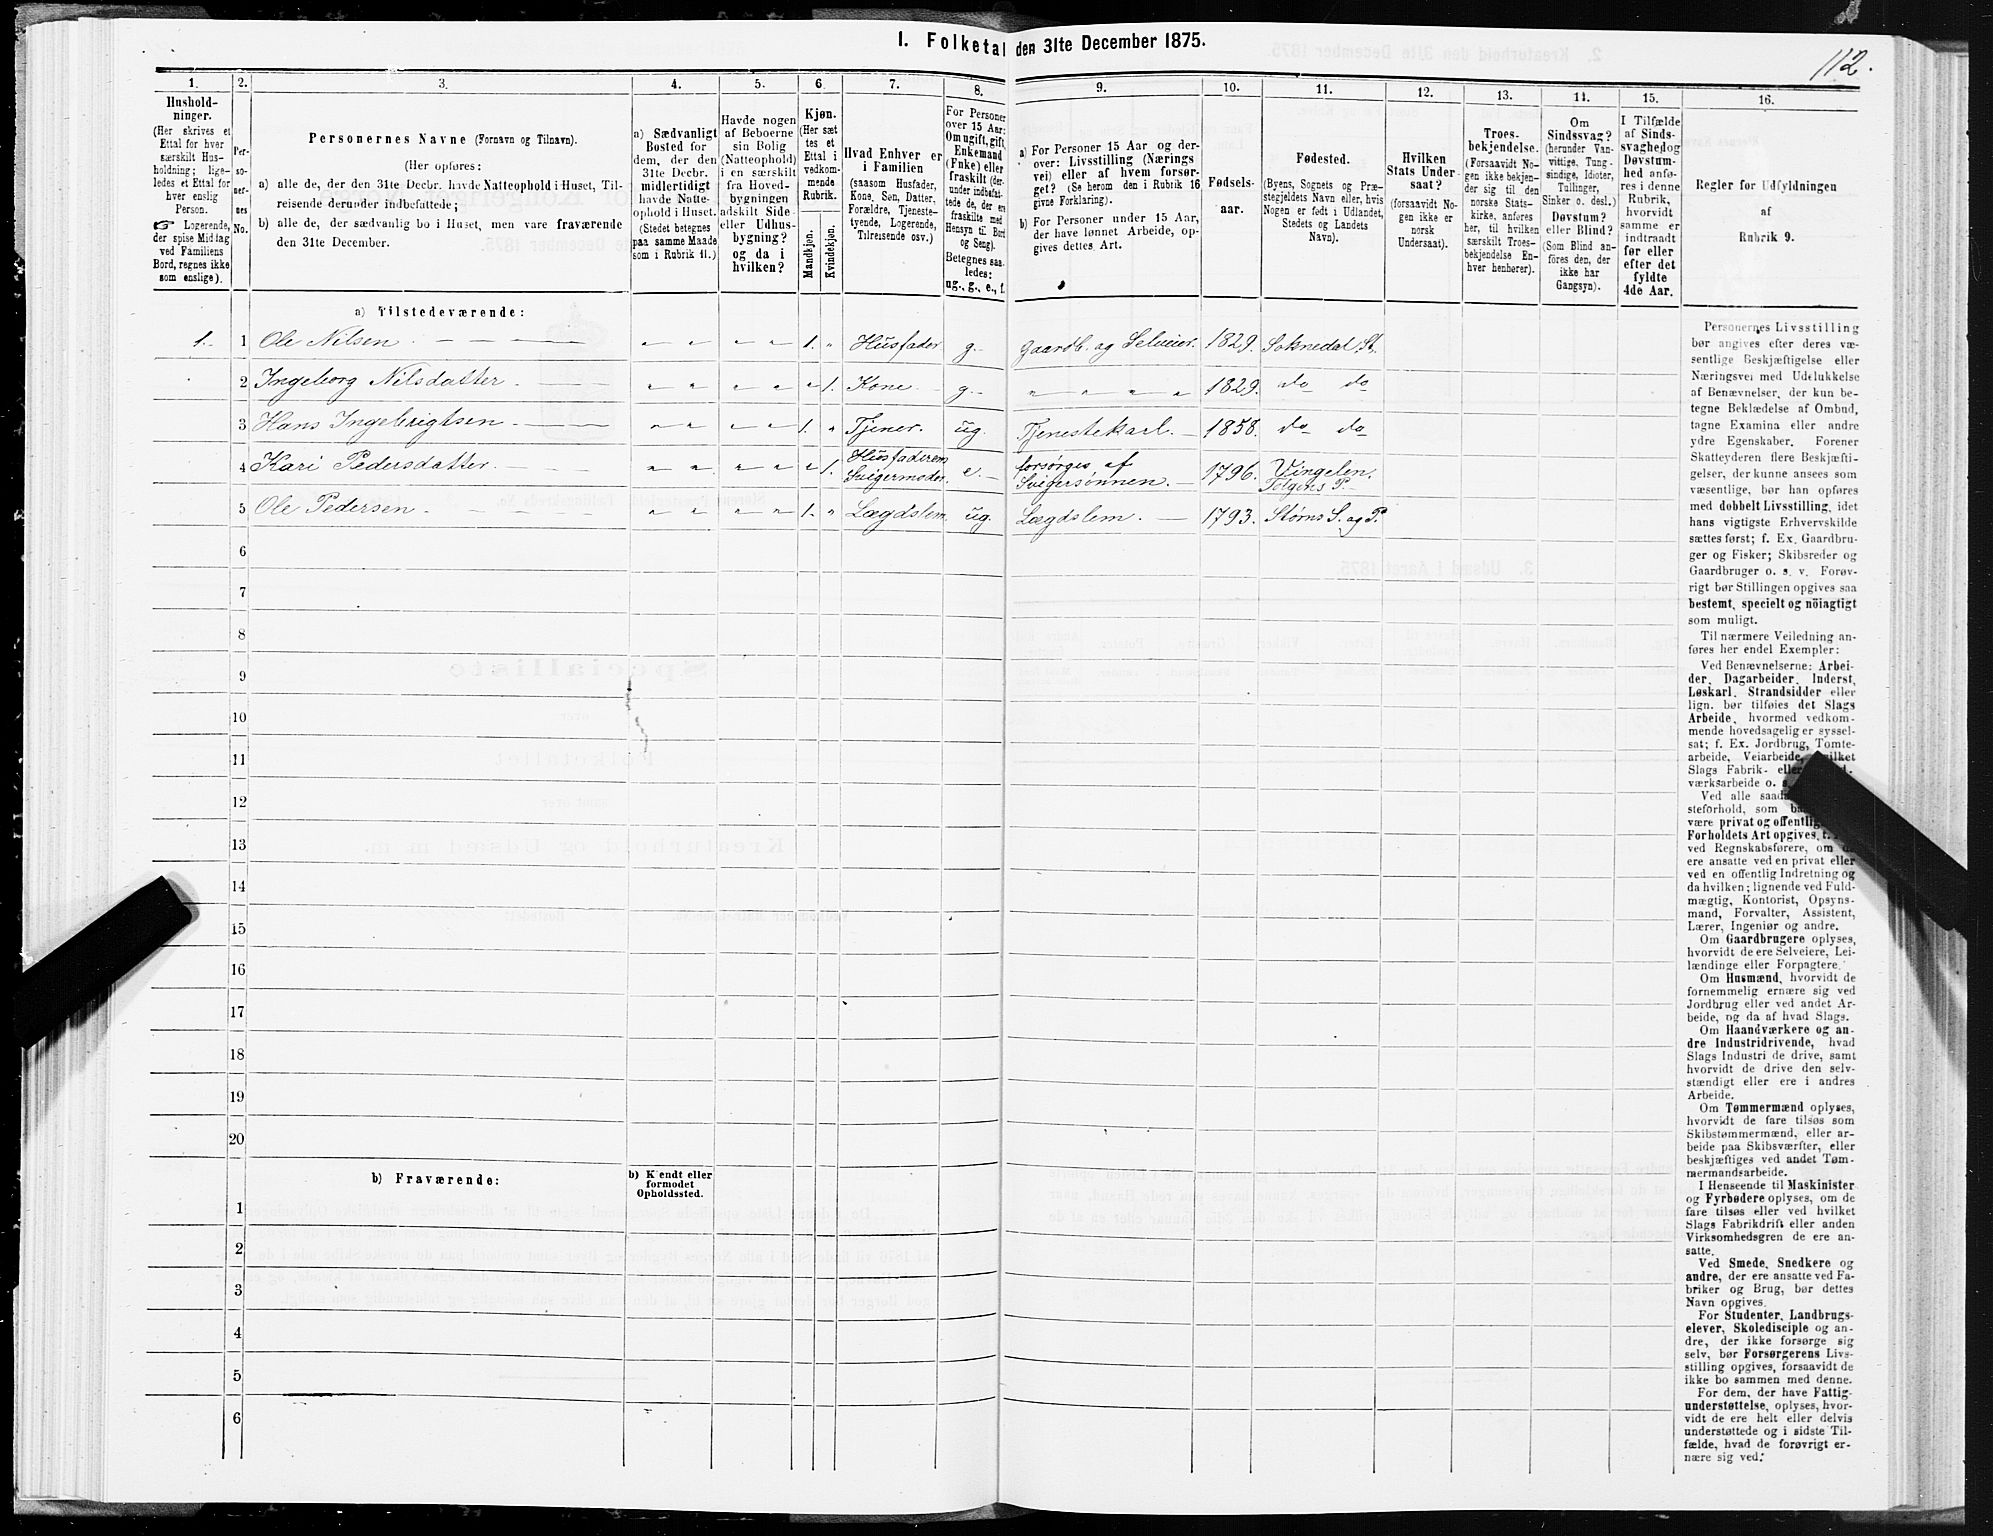 1. Folketal den 31te December 1875.
112.
1.
2.
3.
4.
5.
6.
7.
8.
9.
10.
11.
12.
13.
14.
15.
16.
Hushold-
ninger.
(Her skrives et
Ettal for hver
særskilt Hus-
holdning; lige-
ledes et Ettal for
hver enslig
Person.
☞ Logerende,
der spise Middag
ved Familiens
Bord, regnes ikke
som enslige).
Per-
so-
ner-
nes
No.
Personernes Navne (Fornavn og Tilnavn).
(Her opføres:
a) alle de, der den 31te Decbr. havde Natteophold i Huset, Til-
reisende derunder indbefattede;
b) alle de, der sædvanlig bo i Huset, men vare fraværende
den 31te December.
a) Sædvanligt
Bosted for
dem, der den
31te Decbr.
midlertidigt
havde Natte-
ophold i Huset.
(Stedet betegnes
paa samme Maade
som i Rubrik 11.)
Havde nogen
af Beboerne
sin Bolig
(Natteophold)
i en særskilt
fra Hoved-
bygningen
adskilt Side-
eller Udhus-
bygning?
og da i
hvilken?
Kjøn.
(Her sæt-
tes et
Ettal i
vedkom-
mende
Rubrik.
Mandkjøn.
Kvindekjøn.
Hvad Enhver er
i Familien
(saasom Husfader,
Kone, Søn, Datter,
Forældre, Tjeneste-
tyende, Logerende,
Tilreisende osv.)
For Personer
over 15 Aar:
Om ugift, gift,
Enkemand
(Enke) eller
fraskilt (der-
under indbefat-
tede de, der ere
fraskilte med
Hensyn til Bord
og Seng).
Betegnes saa-
ledes:
ug., g., e., f.
a) For Personer 15 Aar og der-
over: Livsstilling (Nærings-
vei) eller af hvem forsør-
get? (Se herom den i Rubrik 16
givne Forklaring).
b) For Personer under 15 Aar,
der have lønnet Arbeide, op-
gives dettes Art.
Fødsels-
aar.
Fødested.
(Byens, Sognets og Præ-
stegjeldets Navn eller, hvis
Nogen er født i Udlandet,
Stedets og Landets
Navn).
Hvilken
Stats Under-
saat?
(forsaavidt No-
gen ikke er
norsk
Undersaat).
Troes-
bekjendelse.
(Forsaavidt No-
gen ikke bekjen-
der sig til den
norske Stats-
kirke, anføres
her, til hvilken
særskilt Troes-
bekjendelse En-
hver henhører).
Om
Sindssvag?
(herunder Van-
vittige, Tung-
sindige, Idioter,
Tullinger,
Sinker o. desl.)
Døvstum?
eller Blind?
(Som Blind an-
føres den, der
ikke har
Gangsyn).
I Tilfælde
af Sinds-
svaghed og
Døvstum-
hed anfø-
res i denne
Rubrik,
hvorvidt
samme er
indtraadt
før eller
efter det
fyldte
4de Aar.
Regler for Udfyldningen
af
Rubrik 9.
a) Tilstedeværende:
1. 1 Ole Nilsen 1. Husfader g. Gaardb. og Selveier. 1829. Soknedal St.
2 Ingeborg Nilsdatter 1. Kone g. 1829. do do
3 Hans Ingebrigtsen 1. Tjener. ug. Tjenestekarl. 1858. do do
4 Kari Pedersdatter. 1. Husfaderens Svigermoder. e. forsørges af Svigersønnen. 1796. Vingelen. Tolgens P.
5 Ole Pedersen 1. Lægdslem. ug. Lægdslem. 1793. Størns S. og P.
6
7
8
9
10
11
12
13
14
15
16
17
18
19
20
b) Fraværende:
b) Kjendt eller
formodet
Opholdssted.
1
2
3
4
5
6
Personernes Livsstilling
bør angives efter deres væ-
sentlige Beskjæftigelse eller
Næringsvei med Udelukkelse
af Benævnelser, der kun be-
tegne Beklædelse af Ombud,
tagne Examina eller andre
ydre Egenskaber. Forener
Skatteyderen flere Beskjæfti-
gelser, der kunne ansees som
væsentlige, bør han opføres
med dobbelt Livsstilling, idet
hans vigtigste Erhvervskilde
sættes først; f. Ex. Gaardbru-
ger og Fisker; Skibsreder og
Gaardbruger o. s. v. Forøv-
rigt bør Stillingen opgives saa
bestemt, specielt og nöiagtigt
som muligt.
Til nærmere Veiledning an-
føres her endel Exempler:
Ved Benævnelserne: Arbei-
der, Dagarbeider, Inderst,
Løskarl, Strandsidder eller
lign. bør tilføies det Slags
Arbeide, hvormed vedkom-
mende hovedsagelig er syssel-
sat; f. Ex. Jordbrug, Tomte-
arbeide, Veiarbeide,
Slags Fabrik-
værksarbeide o. s.
Ved alle
steforhold, som
være privat og
Forholdets Art opgives,
ved Regnskabsførere, om
ere ansatte ved en privat eller
ved en offentlig Indretning og
da hvilken; lignende ved Fuld-
mægtig, Kontorist, Opsyns-
mand, Forvalter, Assistent,
Lærer, Ingeniør og andre.
Om Gaardbrugere oplyses,
hvorvidt de ere Selveiere, Lei-
lændinge eller Forpagtere.
Om Husmænd, hvorvidt de
fornemmelig ernære sig ved
Jordbrug eller ved andet Ar-
beide, og da af hvad Slags.
Om Haandværkere og an-
dre Industridrivende, hvad
Slags Industri de drive, samt
hvorvidt de drive den selv-
stændigt eller ere i andres
Arbeide.
Om Tømmermænd oplyses,
hvorvidt de fare tilsøs som
Skibstømmermænd, eller ar-
beide paa Skibsværfter, eller
beskjæftiges ved andet Tøm-
mermandsarbeide.
I Henseende til Maskinister
og Fyrbødere oplyses, om de
fare tilsøs eller ved hvilket
Slags Fabrikdrift eller anden
Virksomhedsgren de ere an-
satte.
Ved Smede, Snedkere og
andre, der ere ansatte ved Fa-
briker og Brug, bør dettes
Navn opgives.
For Studenter, Landbrugs-
elever, Skoledisciple og an-
dre, der ikke forsørge sig
selv, bør Forsørgerens Livs-
stilling opgives, forsaavidt de
ikke bo sammen med denne.
For dem, der have Fattig-
understøttelse, oplyses, hvor-
vidt de ere helt eller delvis
understøttede og i sidste Til-
fælde, hvad de forøvrigt er-
nære sig ved.